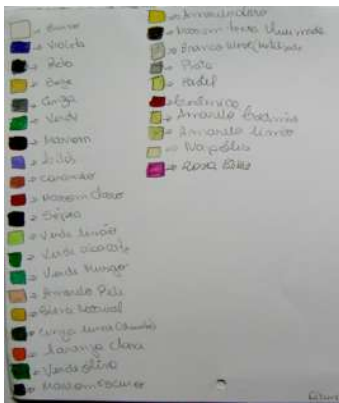 Branco
Violeta
Preto
Bege
Cinza
Verde
Marrom
Lilás
Caramelo
Marrom Claro
Sépia
Verde Limão
Verde abacate
Verde Musgo
Amarelo Pele
Siena Natural
Cinza
Laranja Clara
Verde oliva
Marrom escuro
Marrom terra Queimada
Branco
Prata
Pastel
Amarelo
Amarelo Limão
Napoles
Rosa